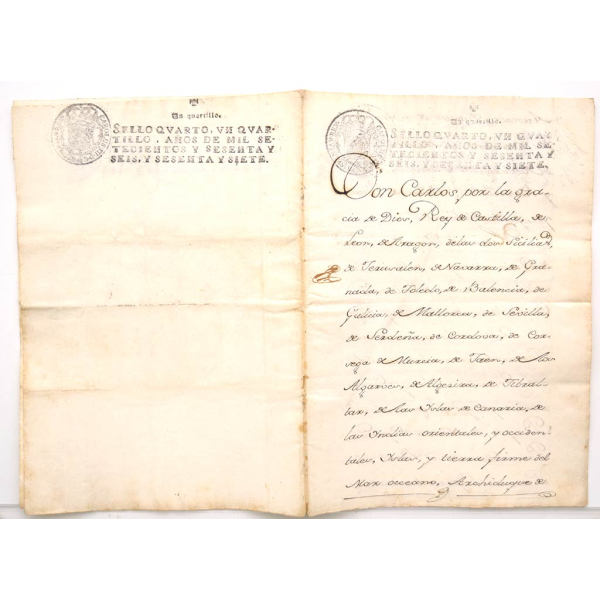 Un quartillo.
SELLO QVARTO, VN QVAR-
TILLO, AÑOS DE MIL SE-
TECIENTOS Y SESENTA Y
SEIS, Y SESENTA Y SIETE.
Un quartillo.
SELLO QVARTO, VN QVAR-
TILLO, AÑOS DE MIL SE-
TECIENTOS Y SESENTA Y
SEIS, Y SESENTA Y SIETE.
Don Carlos, por la gra-
cia de Dios, Rey de Castilla, de
Leon, de Aragon, de las dos Sicilias,
de Jerusalen, de Navarra, de Gra-
nada, de Toledo, de Balencia, de
Galicia, de Mallorca, de Sevilla,
de Serdeña, de Cordova, de Cor-
sega de Murcia, de Jaen, de los
Algarves, de Algezira, de Gibral-
tar, de las Yslas de Canaria, de
las Yndias orientales, y occiden-
tales, Yslas, y tierra firme del
Mar occeano, Archiduque de